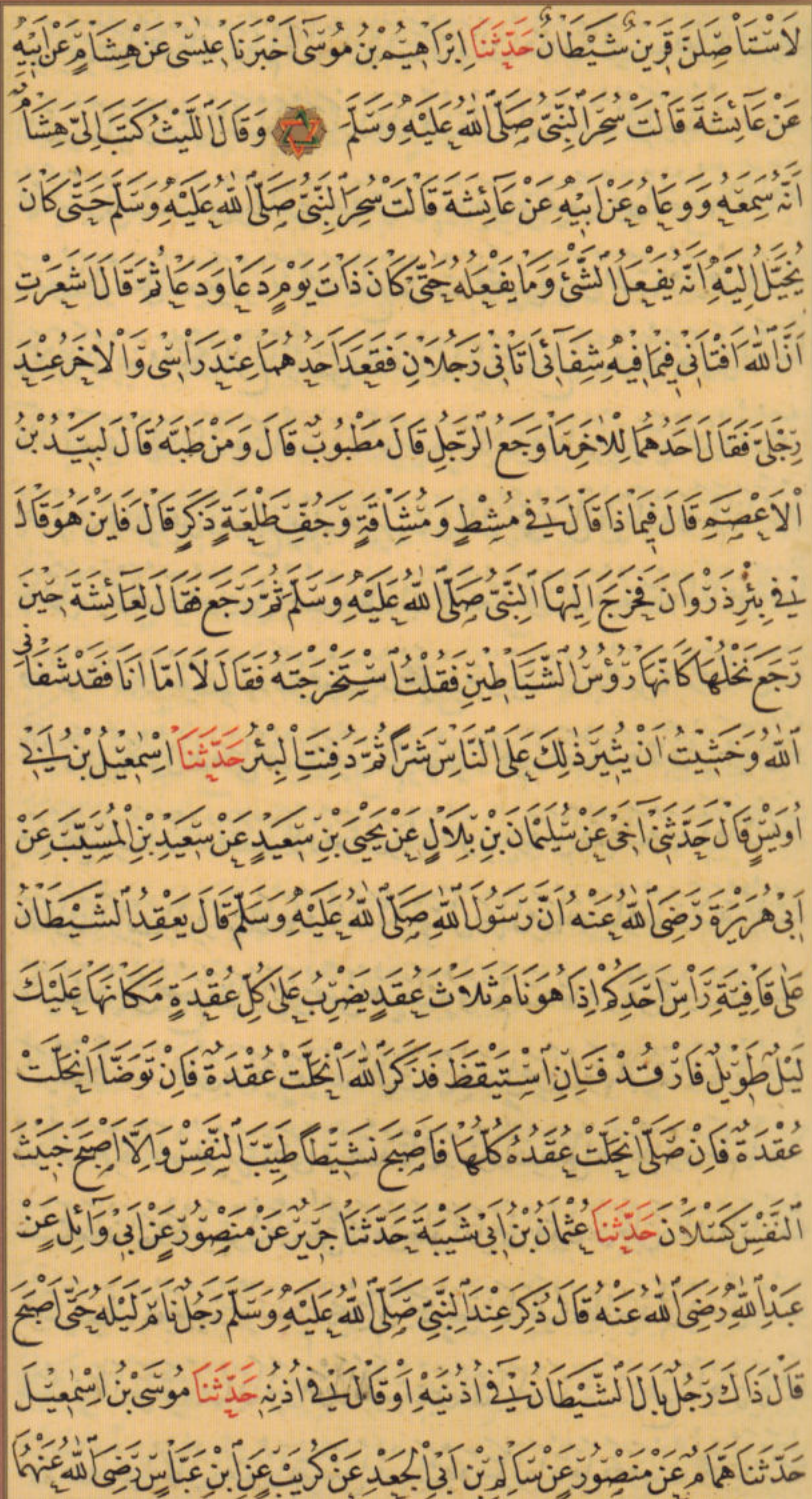 لَاَسْتَأْصِلَنَّ قَرِينٌ شَيْطَانٌ حَدَّثَنَا اِبْرَاهِيمُ بْنُ مُوسٰى اَخْبَرَنَا عِيسٰى عَنْ هِشَامٍ عَنْ اَبِيهِ
عَنْ عَائِشَةَ قَالَتْ سُحِرَ النَّبِىُّ صَلَّى اللّٰهُ عَلَيْهِ وَسَلَّمَ وَقَالَ اللَّيْثُ كَتَبَ اِلَىَّ هِشَامٌ
اَنَّهُ سَمِعَهُ وَوَعَاهُ عَنْ اَبِيهِ عَنْ عَائِشَةَ قَالَتْ سُحِرَ النَّبِىُّ صَلَّى اللّٰهُ عَلَيْهِ وَسَلَّمَ حَتّٰى كَانَ
يُخَيَّلُ اِلَيْهِ اَنَّهُ يَفْعَلُ الشَّىْءَ وَمَا يَفْعَلُهُ حَتّٰى كَانَ ذَاتَ يَوْمٍ دَعَا وَدَعَا ثُمَّ قَالَ اَشَعَرْتِ
اَنَّ اللّٰهَ اَفْتَانِى فِيمَا فِيهِ شِفَائِى اَتَانِى رَجُلَانِ فَقَعَدَ اَحَدُهُمَا عِنْدَ رَأْسِى وَالْاٰخَرُ عِنْدَ
رِجْلَىَّ فَقَالَ اَحَدُهُمَا لِلْاٰخَرِ مَا وَجَعُ الرَّجُلِ قَالَ مَطْبُوبٌ قَالَ وَمَنْ طَبَّهُ قَالَ لَبِيدُ بْنُ
الْاَعْصَمِ قَالَ فِيمَا ذَا قَالَ فِى مُشْطٍ وَمُشَاقَةٍ وَجُفِّ طَلْعَةٍ ذَكَرٍ قَالَ فَاَيْنَ هُوَ قَالَ
فِى بِئْرِ ذَرْوَانَ فَخَرَجَ اِلَيْهَا النَّبِىُّ صَلَّى اللّٰهُ عَلَيْهِ وَسَلَّمَ ثُمَّ رَجَعَ فَقَالَ لِعَائِشَةَ حِينَ
رَجَعَ نَخْلُهَا كَاَنَّهَا رُؤُسُ الشَّيَاطِينِ فَقُلْتُ اسْتَخْرَجْتَهُ فَقَالَ لَا اَمَّا اَنَا فَقَدْ شَفَانِى
اللّٰهُ وَخَشِيتُ اَنْ يُثِيرَ ذٰلِكَ عَلَى النَّاسِ شَرًّا ثُمَّ دُفِنَتِ الْبِئْرُ حَدَّثَنَا اِسْمٰعِيلُ بْنُ اَبِى
اُوَيْسٍ قَالَ حَدَّثَنِى اَخِى عَنْ سُلَيْمَانَ بْنِ بِلَالٍ عَنْ يَحْيَى بْنِ سَعِيدٍ عَنْ سَعِيدِ بْنِ الْمُسَيَّبِ عَنْ
اَبِى هُرَيْرَةَ رَضِىَ اللّٰهُ عَنْهُ اَنَّ رَسُولَ اللّٰهِ صَلَّى اللّٰهُ عَلَيْهِ وَسَلَّمَ قَالَ يَعْقِدُ الشَّيْطَانُ
عَلٰى قَافِيَةِ رَأْسِ اَحَدِكُمْ اِذَا هُوَ نَامَ ثَلَاثَ عُقَدٍ يَضْرِبُ عَلٰى كُلِّ عُقْدَةٍ مَكَانَهَا عَلَيْكَ
لَيْلٌ طَوِيلٌ فَارْقُدْ فَاِنِ اسْتَيْقَظَ فَذَكَرَ اللّٰهَ انْحَلَّتْ عُقْدَةٌ فَاِنْ تَوَضَّاَ انْحَلَّتْ
عُقْدَةٌ فَاِنْ صَلَّى انْحَلَّتْ عُقَدُهُ كُلُّهَا فَاَصْبَحَ نَشِيطًا طَيِّبَ النَّفْسِ وَاِلَّا اَصْبَحَ خَبِيثَ
النَّفْسِ كَسْلَانَ حَدَّثَنَا عُثْمَانُ بْنُ اَبِى شَيْبَةَ حَدَّثَنَا جَرِيرٌ عَنْ مَنْصُورٍ عَنْ اَبِى وَائِلٍ عَنْ
عَبْدِ اللّٰهِ رَضِىَ اللّٰهُ عَنْهُ قَالَ ذُكِرَ عِنْدَ النَّبِىِّ صَلَّى اللّٰهُ عَلَيْهِ وَسَلَّمَ رَجُلٌ نَامَ لَيْلَهُ حَتّٰى اَصْبَحَ
قَالَ ذَاكَ رَجُلٌ بَالَ الشَّيْطَانُ فِى اُذُنَيْهِ اَوْ قَالَ فِى اُذُنِهِ حَدَّثَنَا مُوسَى بْنُ اِسْمٰعِيلَ
حَدَّثَنَا هَمَّامٌ عَنْ مَنْصُورٍ عَنْ سَالِمِ بْنِ اَبِى الْجَعْدِ عَنْ كُرَيْبٍ عَنِ ابْنِ عَبَّاسٍ رَضِىَ اللّٰهُ عَنْهُمَا